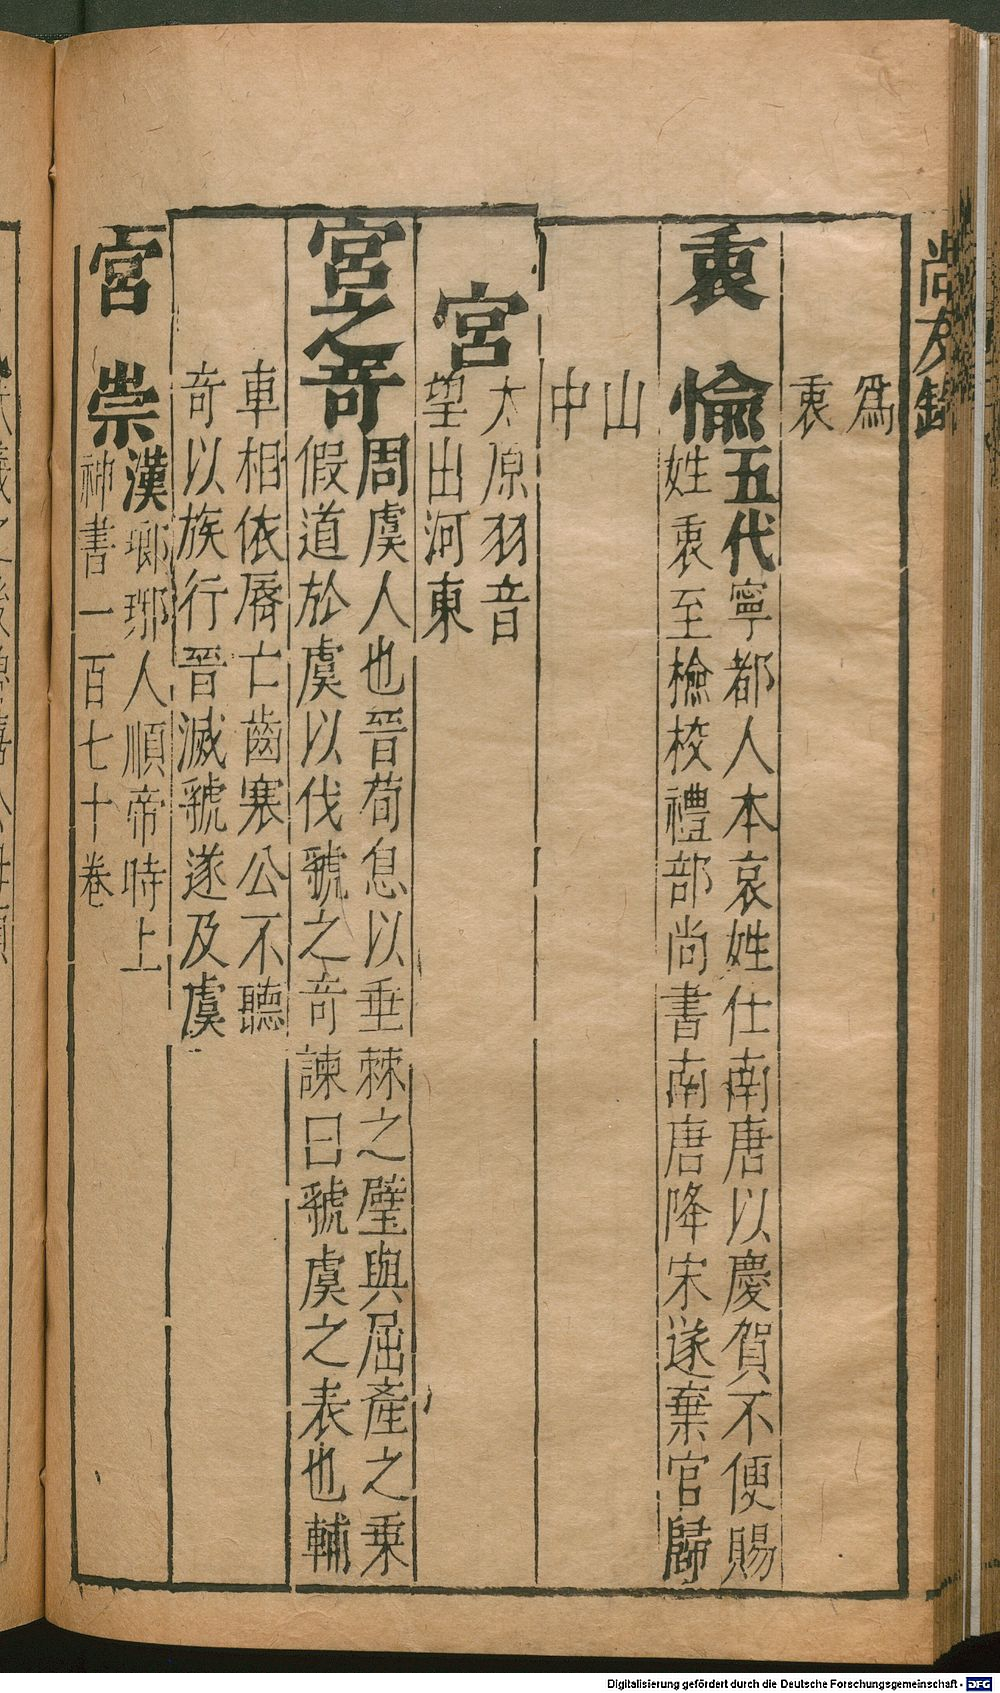 尚友錄
爲
衷
衷愉五代寧都人本哀姓仕南唐以慶賀不便賜
姓衷至檢校禮部尚書南唐降宋遂棄官歸
山
中
宮太原羽音
望出河東
宮之奇周虞人也晉荀息以垂棘之璧與屈產之乘
假道於虞以伐虢之奇諫曰虢虞之表也輔
車相依唇亡齒寒公不聽
奇以族行晉滅虢遂及虞
宮崇漢瑯琊人順帝時上
神書一百七十卷
Digitalisierung gefördert durch die Deutsche Forschungsgemeinschaft - DFG